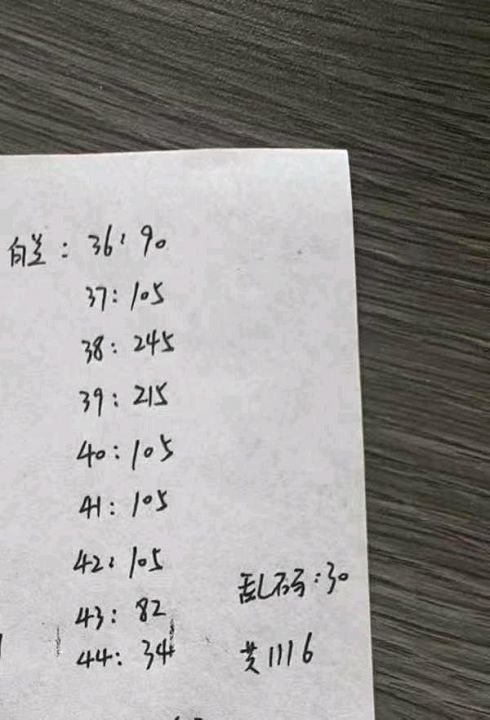 白兰: 36: 90
37: 105
38: 245
39: 215
40: 105
41: 105
42: 105
乱码: 30
43: 82
44: 34
共1116